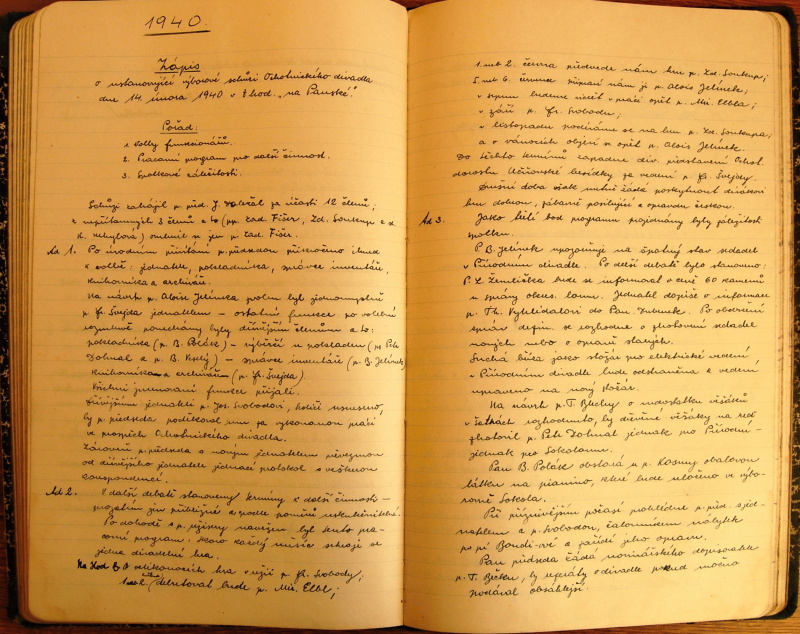 1940.
Zápis
o ustanovující výborové schůzi Ochotnického divadla
dne 14. února 1940 v 8 hod. "na Panské".
Pořad:
1. Volby funkcionářům.
2. Pracovní program pro další činnost.
3. Spolkové záležitosti.
Schůzi zahájil p. před. J. za účasti 12 členů,
z 3 členů a to (pp. Lad. Fišer, Zd. Soukup a d.
K. ) omluvil se jen p. Lad. Fišer.
Ad 1. Po úvodním přivítání p. předsedou přikročeno ihned
k volbě: jednatele, pokladníka, správce inventáře,
knihovníka a archiváře.
Na návrh p. Aloise Jelínka zvolen byl jednomyslně
p. Fr. Švejda jednatelem – ostatní funkce po volební
ponechány byly dřívějším členům a to:
pokladníka (p. B. Polák) – výběrčí u pokladen (p. Petr
Dohnal a p. B. ) – správce inventáře (p. B. Jelínek)
knihovníka a archiváře (p. Fr. Švejda).
Všichni jmenovaní funkce přijali.
Dřívějšímu jednateli p. Jos. Svobodovi, usneseno,
by p. předseda poděkoval mu za vykonanou práci
ve prospěch Ochotnického divadla.
Zároveň p. předseda s novým jednatelem převezmou
od dřívějšího jednatele jednací protokol s veškerou
korespondencí.
Ad 2. V další debatě stanoveny termíny k další činnosti –
jen přibližně a podle poměrů uskutečnitelné.
Po dohodě s p. režiséry navržen byl tento pra-
covní program: skoro každý měsíc sehraje se
jedna divadelní hra.
Na Hod B. O velikonocích hra v režii p. Fr. Svobody;
debutovat bude p. Mir. Elbl;
1. neb 2. června předvede nám hru p. Zd. Soukup;
5. neb 6. července nám ji p. Alois Jelínek;
v srpnu budeme v práci opět p. Mir. Elbla;
v září p. Fr. Svobodu;
v listopadu podíváme se na hru p. Zd. Soukupa;
a o vánocích objeví se opět p. Alois Jelínek.
Do těchto termínů zapadne div. představení Ochot.
dorostu besídky za vedení p. Fr. Švejdy.
Dnešní doba však nutně žádá poskytnout divákovi
hru dobrou, zábavně poučující a opravdu českou.
Ad 3. Jako třetí bod programu projednány byly záležitosti
spolku.
P. B. Jelínek upozorňuje na špatný stav sedadel
v Přírodním divadle. Po delší debatě bylo stanoveno:
P. L. Žemlička bude se informovat o ceně 60 kamenů
u správy okres. lomu. Jednatel dopíše o informace
p. Th. Vyhlídalovi do Pan. Dubenek. Po obdržení
zpráv defin. se rozhodne o zhotovení sedadel
nových nebo o opravě starých.
Suchá bříza jako stožár pro elektrické vedení
v Přírodním divadle bude odstraněna a vedení
upraveno na nový stožár.
Na návrh p. T. Bechy o nedostatku věšáků
v šatnách rozhodnuto, by dřevěné věšáky na zeď
zhotovil p. Petr Dohnal jednak pro Přírodní –
jednak pro Sokolovnu.
Pan B. Polák obstará u p. Kosiny obalovou
látku na pianino, které bude uloženo ve výbo-
rovně Sokola.
Při příznivějším počasí prohlédne p. před. s jed-
natelem a p. Svobodou, čalouníkem nábytek
po pí Bondi-ové a zařídí jeho opravu.
Pan předseda žádá novinářského dopisovatele
p. T. Bechu, by referáty o divadle pokud možno
podával obsáhlejší.